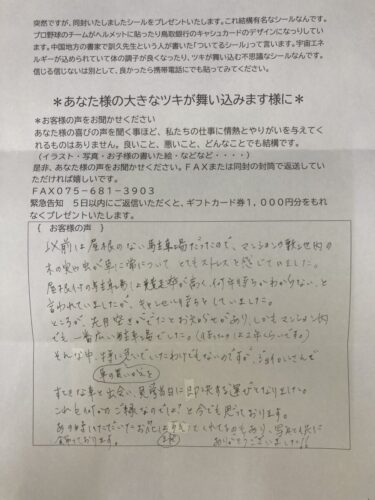 突然ですが、同封いたしましたシールをプレゼントいたします。これ結構有名なシールなんです。
プロ野球のチームがヘルメットに貼ったり鳥取銀行のキャッシュカードのデザインになりしています。
中国地方の書家で副久先生という人が書いた「ついてるシール」って言います。宇宙エネ
ルギーが込められていて体の調子が良くなったり、ツキが舞い込む不思議なシールなんです。
信じる信じないは別として、良かったら携帯電話にでも貼ってみてください。
＊あなた様の大きなツキが舞い込みます様に＊
＊お客様の声をお聞かせください
あなた様の喜びの声を聞く事ほど、私たちの仕事に情熱とやりがいを与えてく
れるものはありません。良いこと、悪いこと、どんなことでも結構です。
（イラスト・写真・お子様の書いた絵・などなど・・・・）
是非、あなた様の声をお聞かせください。FAXまたは同封の封筒で返送してい
ただければ嬉しいです。
FAX075-681-3903
緊急告知　5日以内にご返信いただくと、ギフトカード券1,000円分をもれ
なくプレゼントいたします。
{ お客様の声 }
以前は屋根のない駐車場だったので、マンションの敷地内の
木の実や虫が車に落について とてもストレスを感じていました。
屋根付の駐車場は競走率が高く、何年待ちかわからない、と
言われていましたが、キャンセル待ちをしていました。
ところが、先月空きがでたとお知らせがあり、しかもマンション内
でも一番広い駐車場でした。
そんな中、特に急いでいたわけでもないのですが、ジョイカーさんで
車の買いかえを
すてきな車と出会い、見学当日に即決する運びとなりました。
これも何かのご縁なのでは？と今でも思っております。
ありがとうございました!!